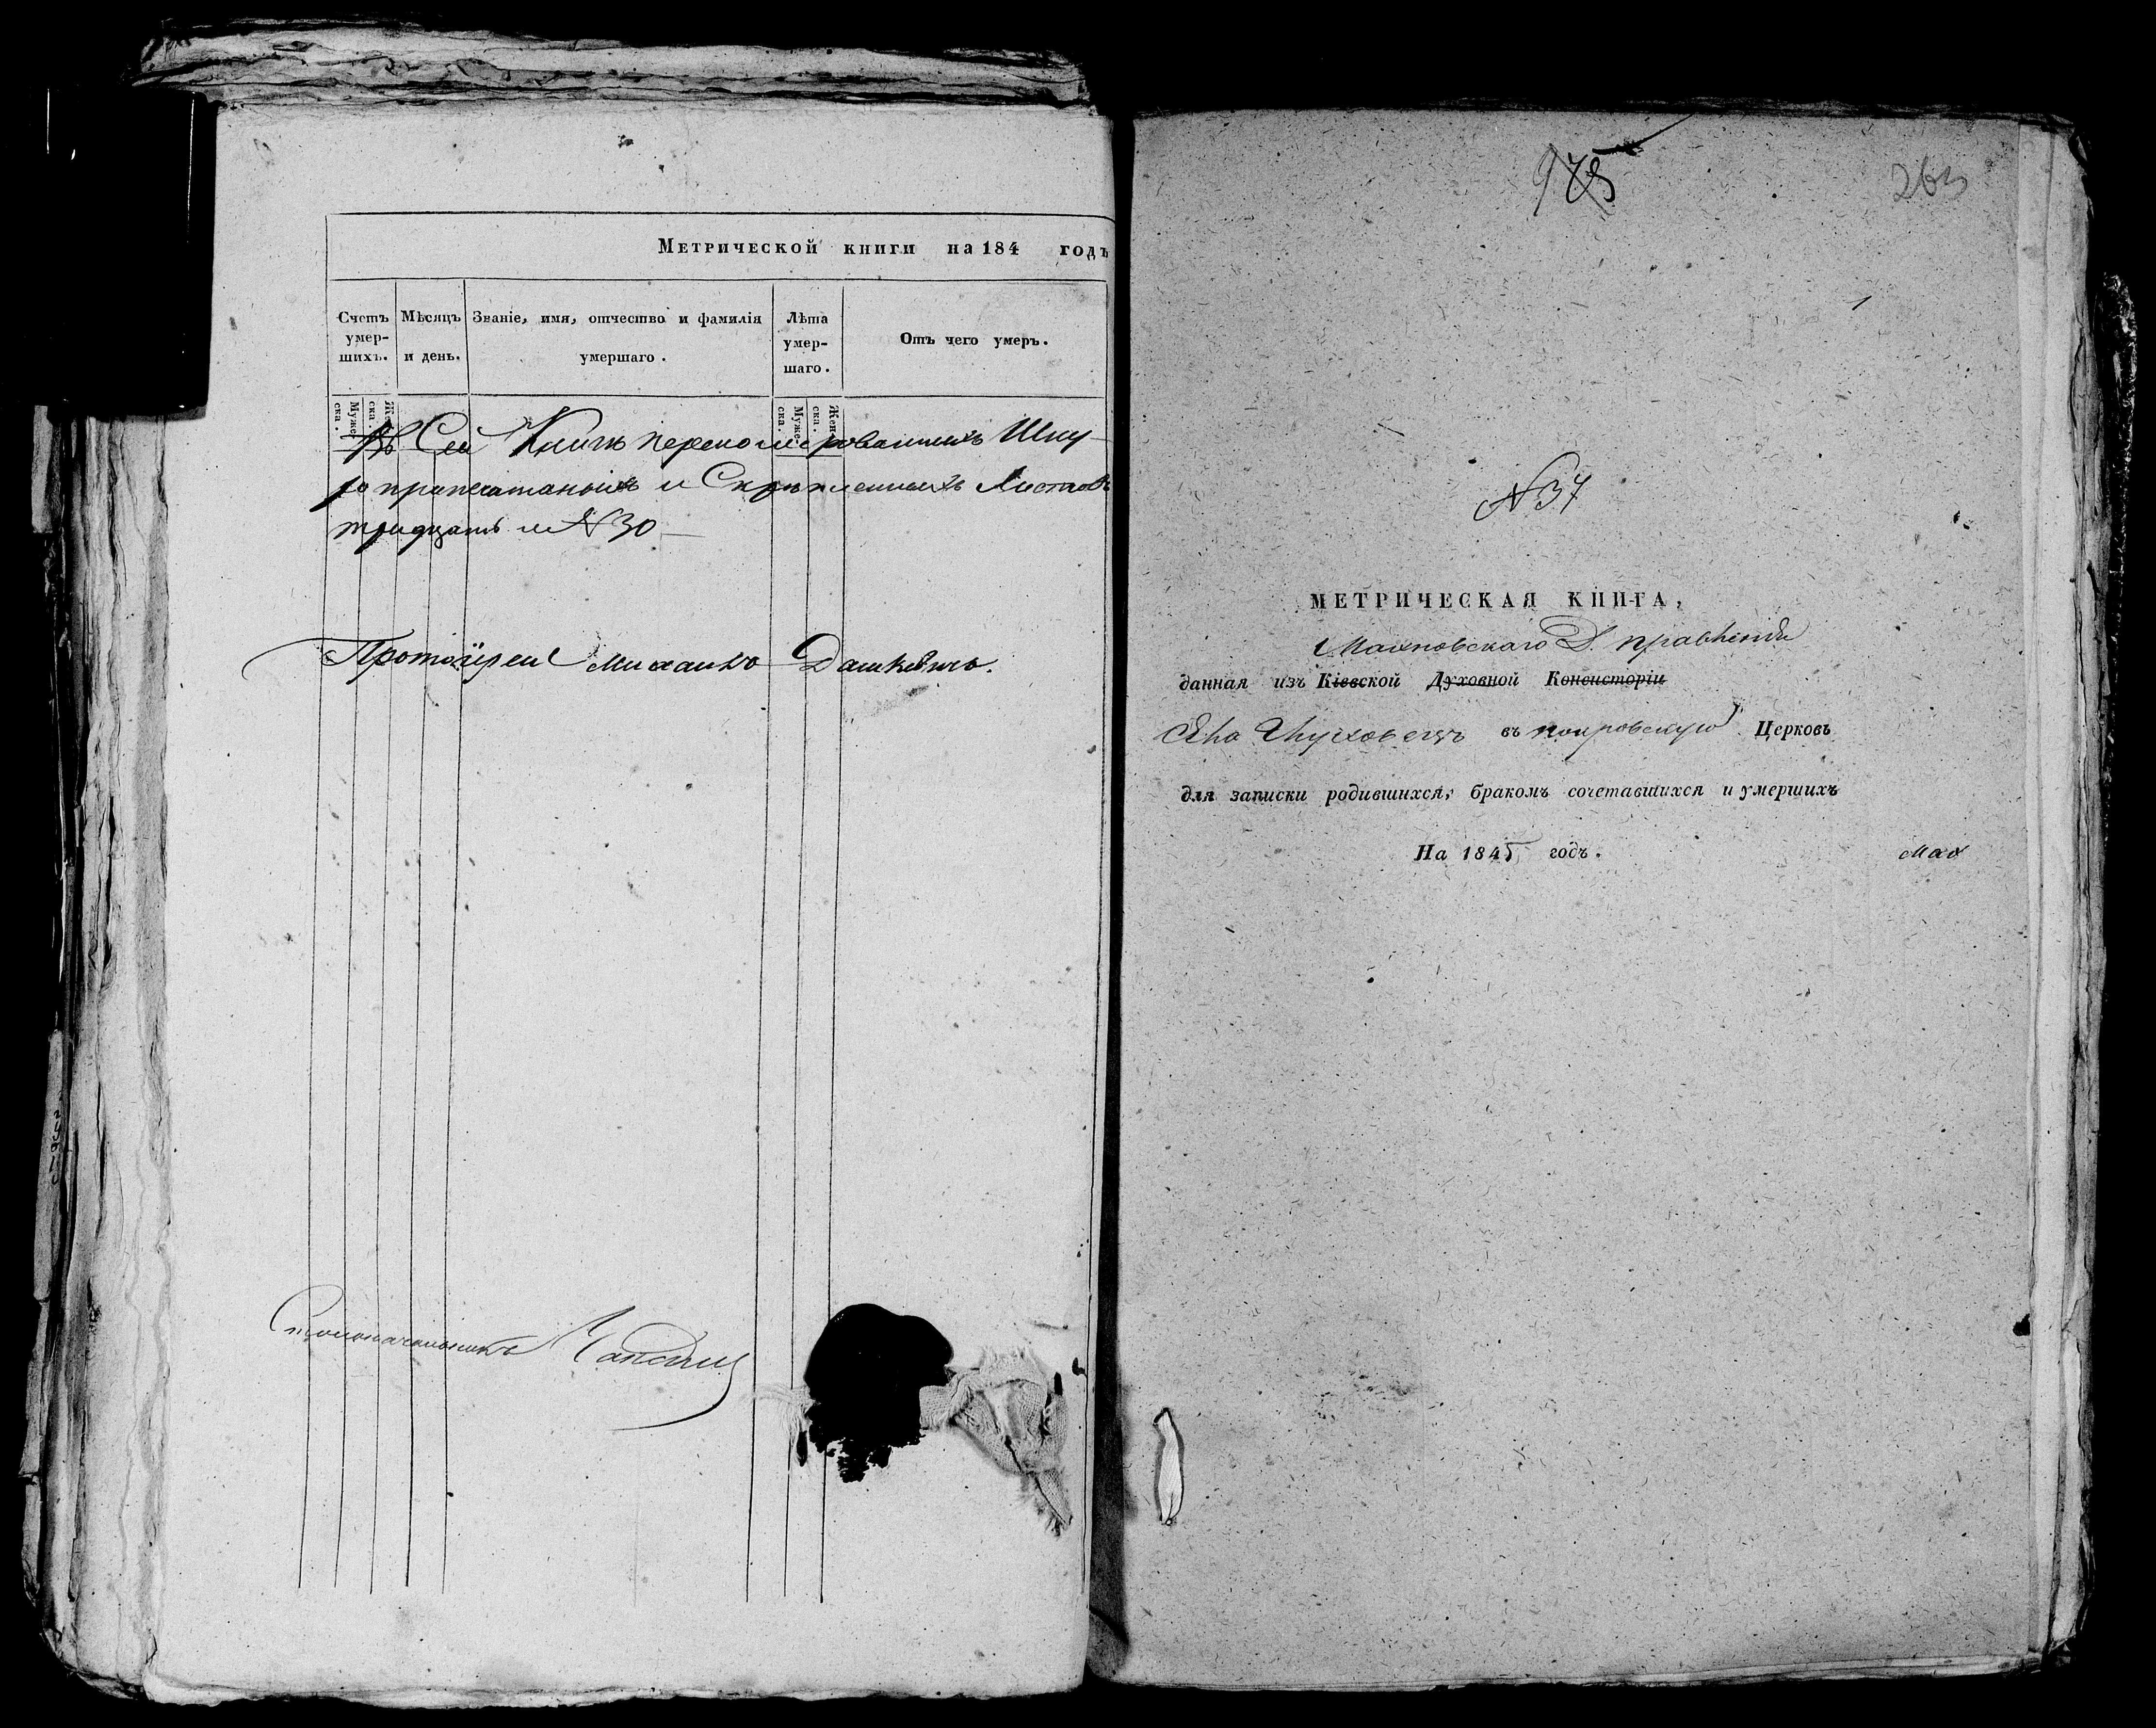 Метрической книги на 184 годъ
Счетъ умер-шихъ.
Мѣсяцъ и день.
Званіе, имя, отчество и фамилія умершаго.
Лѣта умер-шаго.
Отъ чего умеръ.
Муже-ска.
Жен-ска.
Муже-ска.
Жен-ска.
Въ Сей Книгѣ переномерованныхъ Шну-
ро пропечатаныхъ и Скрѣпленныхъ Листовъ
тридцать и №30
Протоіерей Михаилъ Дашкевичъ.
Столоначальникъ
975
263
№37
МЕТРИЧЕСКАЯ КНИГА,
Махновскаго Д. правленія
данная изъ Кіевской Духовной Консисторіи
въ покровскую Церковь
для записки родившихся, бракомъ сочетавшихся и умершихъ
На 1845 годъ.
Мах